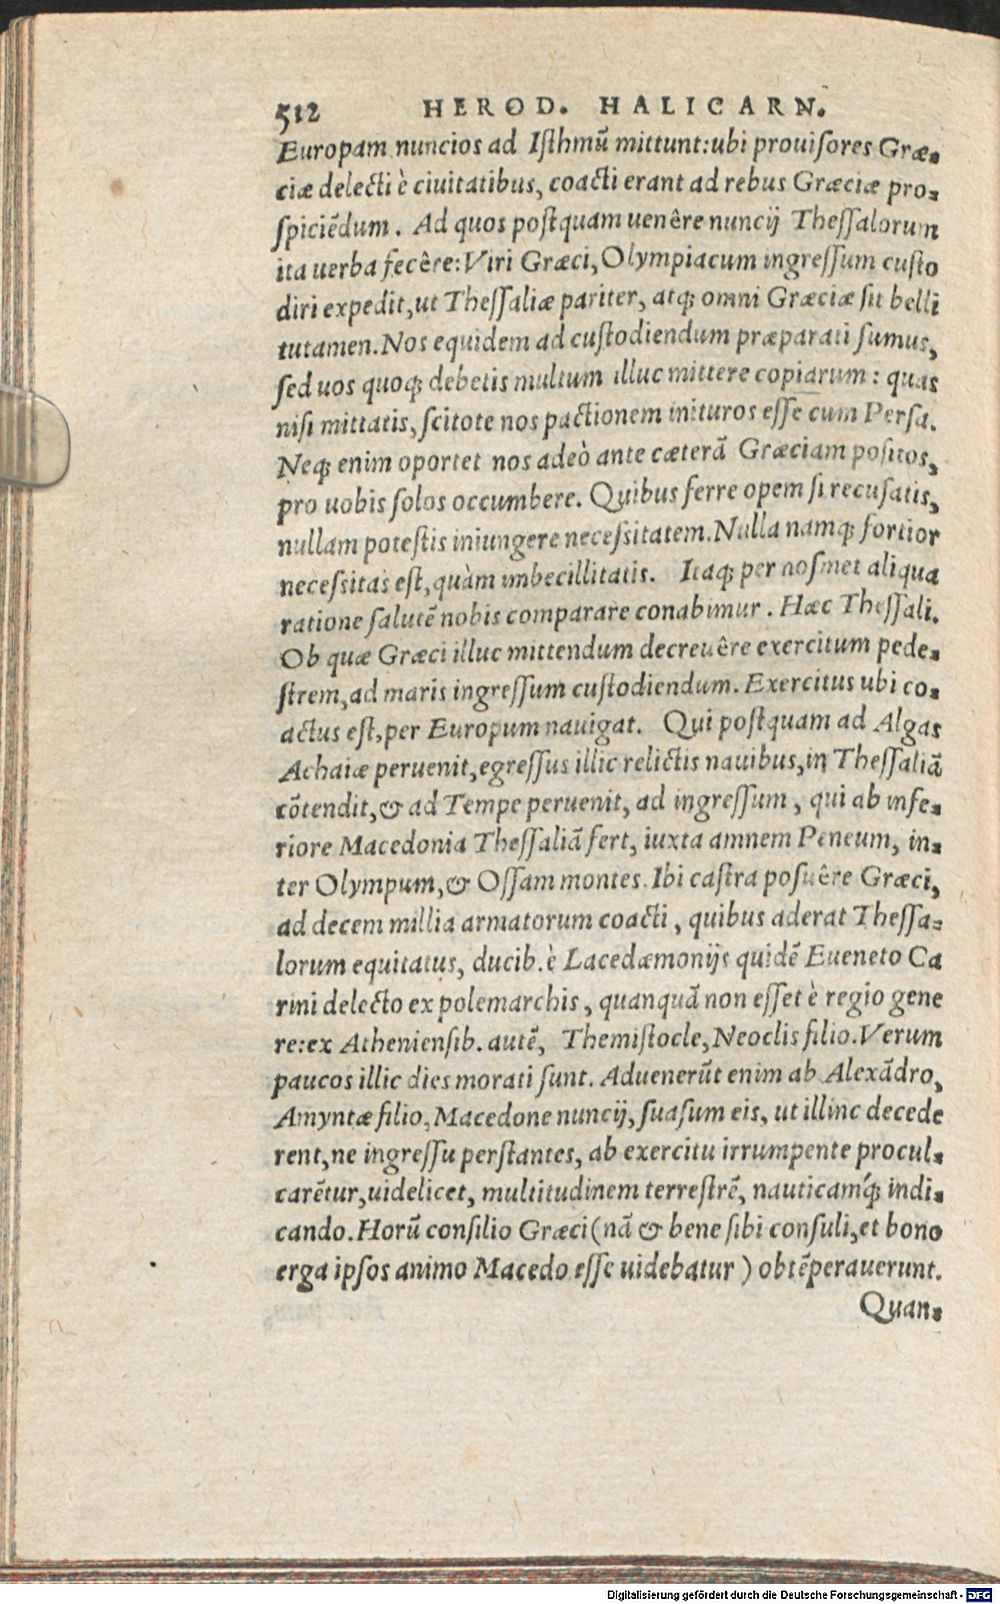 512 HEROD. HALICARN.
Europam nuncios ad Iſthmū mittunt:ubi prouiſores Græ-
ciæ delecti è ciuitatibus, coacti erant ad rebus Græciæ pro-
ſpiciēdum. Ad quos poſtquam uenêre nuncij Theſſalorum
ita uerba fecêre:Viri Græci,Olympiacum ingreſſum cuſto
diri expedit,ut Theſſaliæ pariter, atq; omni Græciæ ſit belli
tutamen.Nos equidem ad cuſtodiendum præparati ſumus,
ſed uos quoq; debetis multum illuc mittere copiarum: quas
niſi mittatis, ſcitote nos pactionem inituros eſſe cum Perſa.
Neq; enim oportet nos adeò ante cæterā Græciam poſitos,
pro uobis ſolos occumbere. Quibus ferre opem ſi recuſatis,
nullam poteſtis iniungere neceſsitatem.Nulla namq; fortior
neceſsitas eſt,quàm imbecillitatis. Itaq; per noſmet aliqua
ratione ſalutē nobis comparare conabimur. Hæc Theſſali.
Ob quæ Græci illuc mittendum decreuêre exercitum pede-
ſtrem,ad maris ingreſſum cuſtodiendum. Exercitus ubi co-
actus eſt,per Europum nauigat. Qui poſtquam ad Algas
Achaiæ peruenit,egreſſus illic relictis nauibus,in Theſſaliā
cōtendit,& ad Tempe peruenit, ad ingreſſum, qui ab infe-
riore Macedonia Theſſaliā fert, iuxta amnem Peneum, in-
ter Olympum,& Oſſam montes. Ibi caſtra poſuêre Græci,
ad decem millia armatorum coacti, quibus aderat Theſſa-
lorum equitatus, ducib. è Lacedæmonijs quidē Eueneto Ca
rini delecto ex polemarchis, quanquā non eſſet è regio gene
re:ex Athenienſib. autē, Themiſtocle,Neoclis filio.Verum
paucos illic dies morati ſunt. Aduenerūt enim ab Alexādro,
Amyntæ filio,Macedone nuncij,ſuaſum eis, ut illinc decede
rent,ne ingreſſu perſtantes, ab exercitu irrumpente procul-
carētur,uidelicet, multitudinem terreſtrē, nauticamq́; indi-
cando.Horū conſilio Græci(nā & bene ſibi conſuli,et bono
erga ipſos animo Macedo eſſe uidebatur) obtēperauerunt.
Quan-
Digitalisierung gefördert durch die Deutsche Forschungsgemeinschaft - DFG